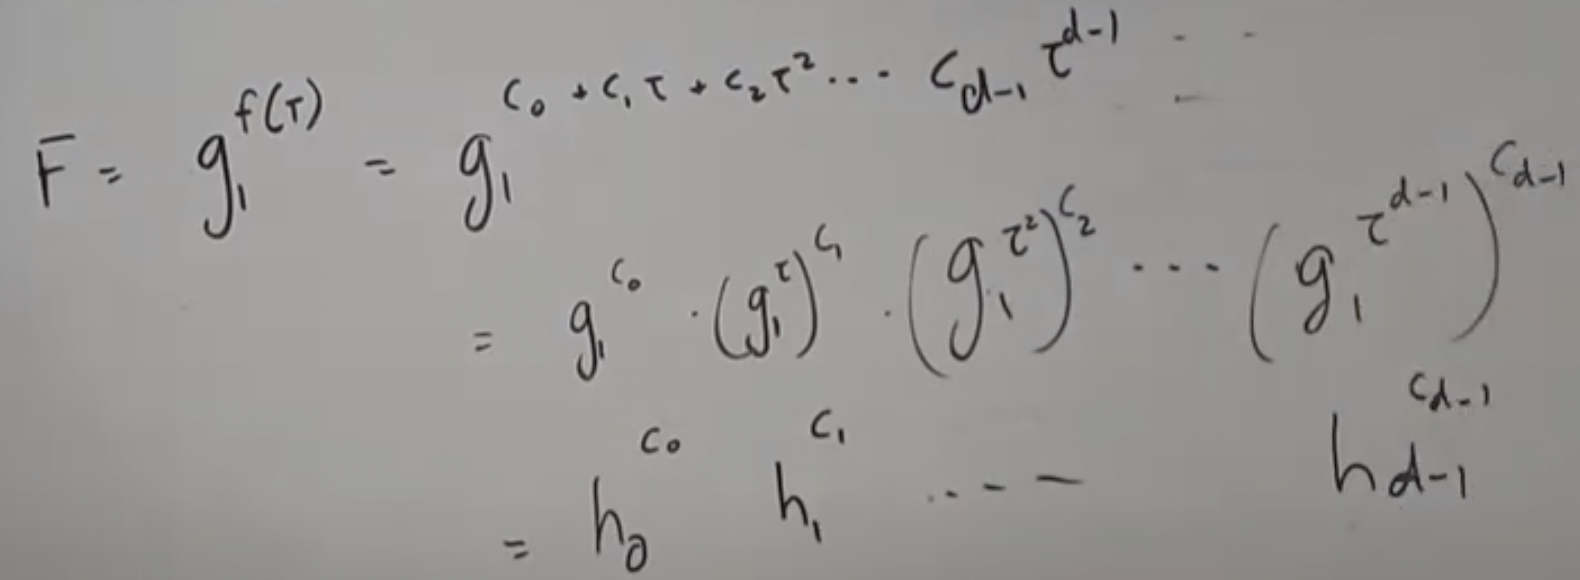 F = g₁^{f(τ)} = g₁^{c₀ + c₁τ + c₂τ² ... c_{d-1} τ^{d-1}}
= g₁^{c₀} · (g₁^{τ})^{c₁} · (g₁^{τ²})^{c₂} ... (g₁^{τ^{d-1}})^{c_{d-1}}
= h₀^{c₀} h₁^{c₁} ... h_{d-1}^{c_{d-1}}